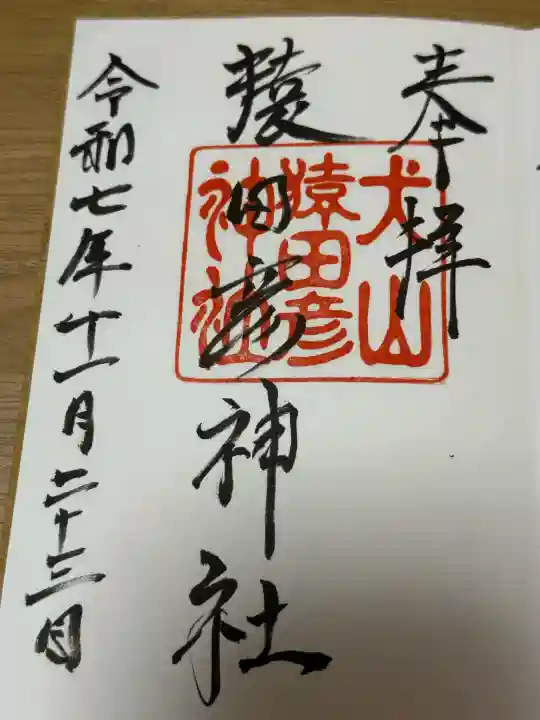 奉拝
犬山
猿田彦
神社
猿田彦神社
令和七年十一月二十三日